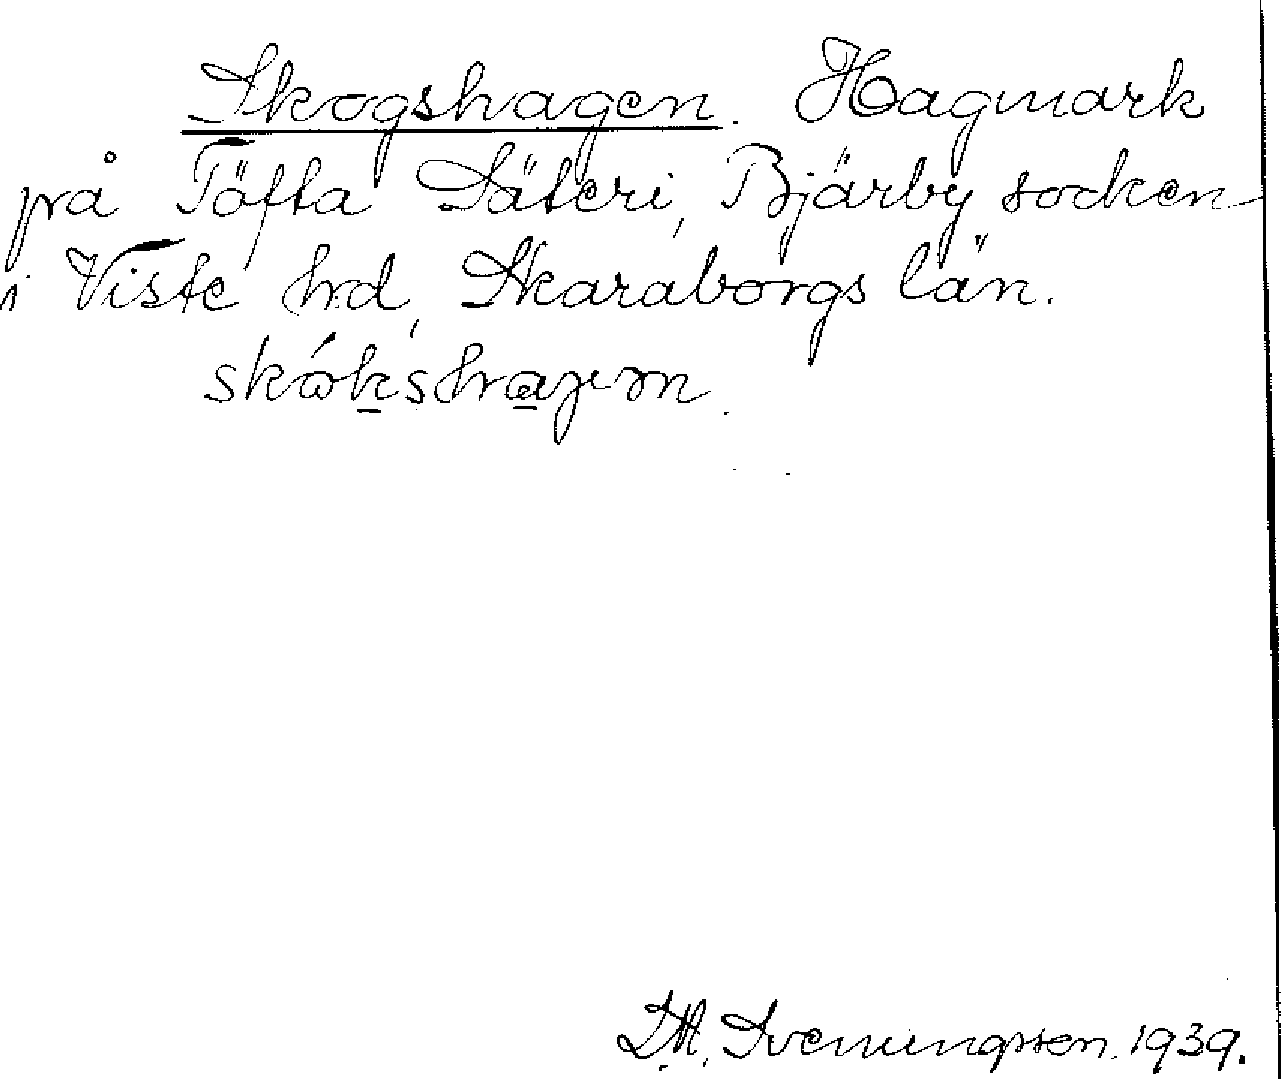 Skogshagen. Hagmark
på Töfta Säteri, Bjärby socken
i Viste hrd, Skaraborgs län.
Svenungsson. 1939.